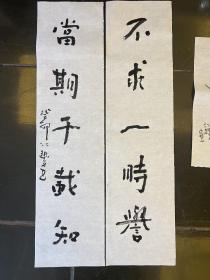 不求一時譽
當期千載知